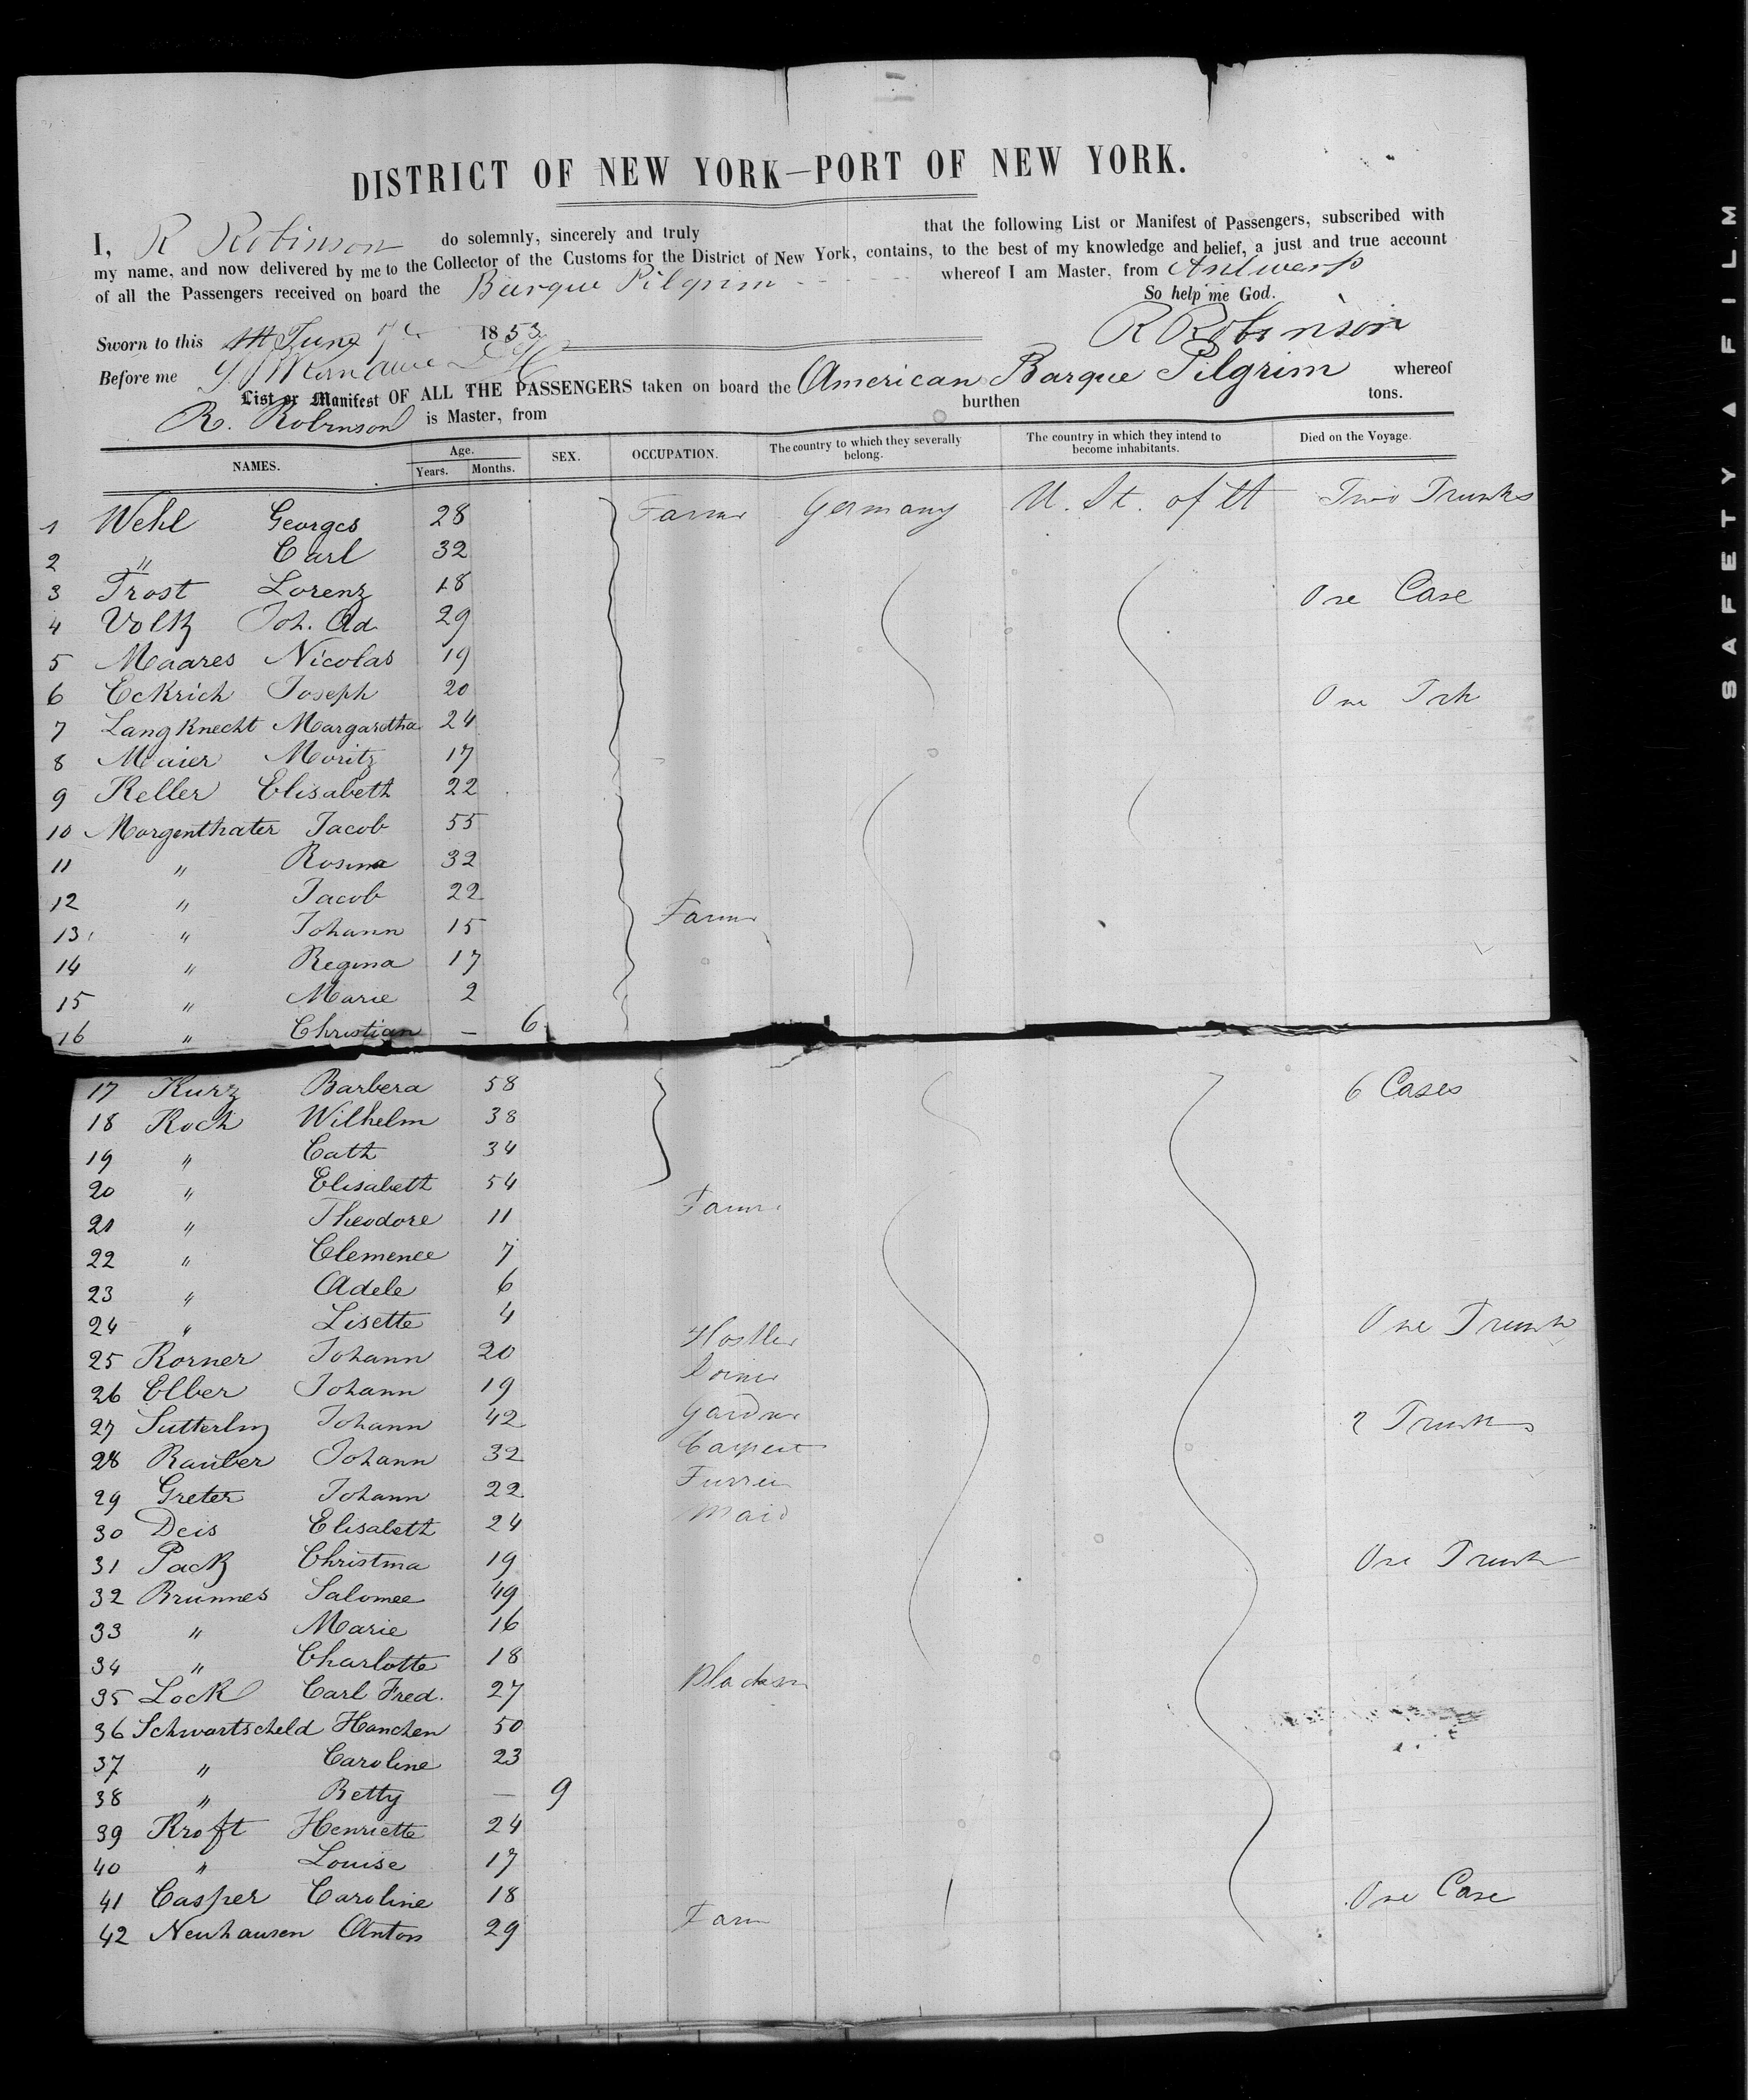 DISTRICT OF NEW YORK—PORT OF NEW YORK.
I, R Robinson do solemnly, sincerely and truly that the following List or Manifest of Passengers, subscribed with
my name, and now delivered by me to the Collector of the Customs for the District of New York, contains, to the best of my knowledge and belief, a just and true account
of all the Passengers received on board the Barque Pilgrim whereof I am Master, from Antwerp
So help me God.
Sworn to this June 1853. R Robinson
Before me
List or Manifest OF ALL THE PASSENGERS taken on board the American Barque Pilgrim whereof
R. Robinson is Master, from burthen tons.
NAMES. Age. Years. Months. SEX. OCCUPATION. The country to which they severally belong. The country in which they intend to become inhabitants. Died on the Voyage.
1 Wehl Georges 28 Farmer Germany U. St. of Two Trunks
2 " Carl 32
3 Trost Lorenz 18 One Case
4 Volk Joh. Ad 29
5 Maares Nicolas 19
6 Eckrich Joseph 20 One Trk
7 Langknecht Margaretha 24
8 Maier Moritz 17
9 Keller Elisabeth 22
10 Morgenthater Jacob 55
11 " Rosina 32
12 " Jacob 22
13 " Johann 15 Farmer
14 " Regina 17
15 " Marie 2
16 " Christian — 6
17 Kurz Barbera 58 6 Cases
18 Koch Wilhelm 38
19 " Cath 34
20 " Elisabeth 54
21 " Theodore 11 Farmer
22 " Clemence 7
23 " Adele 6
24 " Lisette 4 One Trunk
25 Korner Johann 20 Hostler
26 Elber Johann 19 Joiner
27 Sutterlin Johann 42 Gardner 2 Trunks
28 Rauber Johann 32 Carpent
29 Greter Johann 22 Furrier
30 Deis Elisabeth 24 Maid
31 Pack Christina 19 One Trunk
32 Brunnes Salomee 49
33 " Marie 16
34 " Charlotte 18
35 Lock Carl Fred. 27 Blacksm
36 Schwartscheld Hanchen 50
37 " Caroline 23
38 " Betty — 9
39 Kroft Henriette 24
40 " Louise 17
41 Casper Caroline 18 One Case
42 Neuhausen Anton 29 Farm
SAFETY ▲ FILM